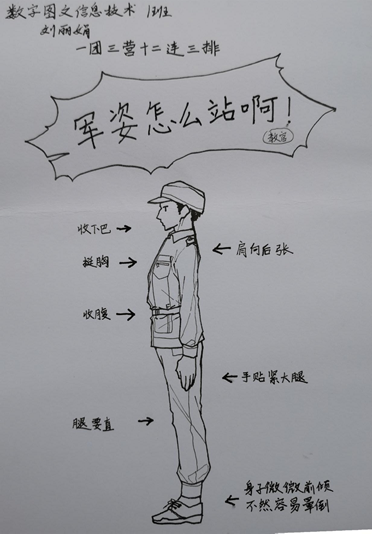 数字图文信息技术 1班
刘丽娟
一团三营十二连三排
军姿怎么站啊！
教官
收下巴
肩向后张
挺胸
收腹
手贴紧大腿
腿要直
身子微微前倾
不然容易晕倒